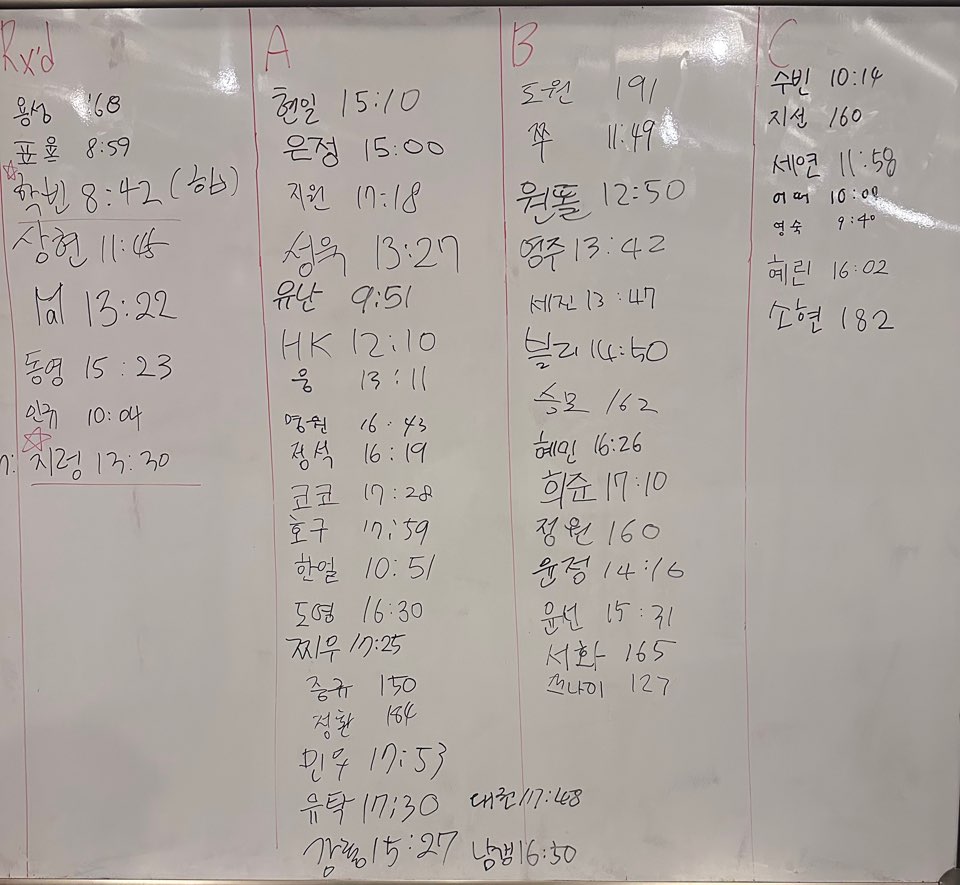 Rx'd
용성 '68
표욘 8:59
학빈 8:42 (하비)
상현 11:45
Mal 13:22
동영 15:23
인규 10:04
지령 13:30
A
현일 15:10
은정 15:00
지원 17:18
성욱 13:27
유난 9:51
HK 12:10
웅 13:11
명원 16:43
정석 16:19
코코 17:28
호구 17:59
한일 10:51
도영 16:30
찌우 17:25
증규 150
정환 184
민우 17:53
유탁 17:30
15:27
B
도원 191
쭈 11:49
원똘 12:50
영주 13:42
세진 13:47
블리 14:50
승모 162
혜민 16:26
희쥰 17:10
정원 160
윤정 14:16
윤선 15:31
서화 165
쯔나이 127
17:48
16:50
C
수빈 10:14
지선 160
세연 11:58
영숙 9:40
혜린 16:02
소현 182